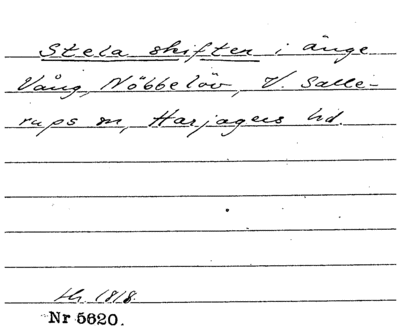 Stela skiften i änge
Vång, Nöbbelöv, V. Salle-
rups sn, Harjagers hd.
1818.
Nr 5620.